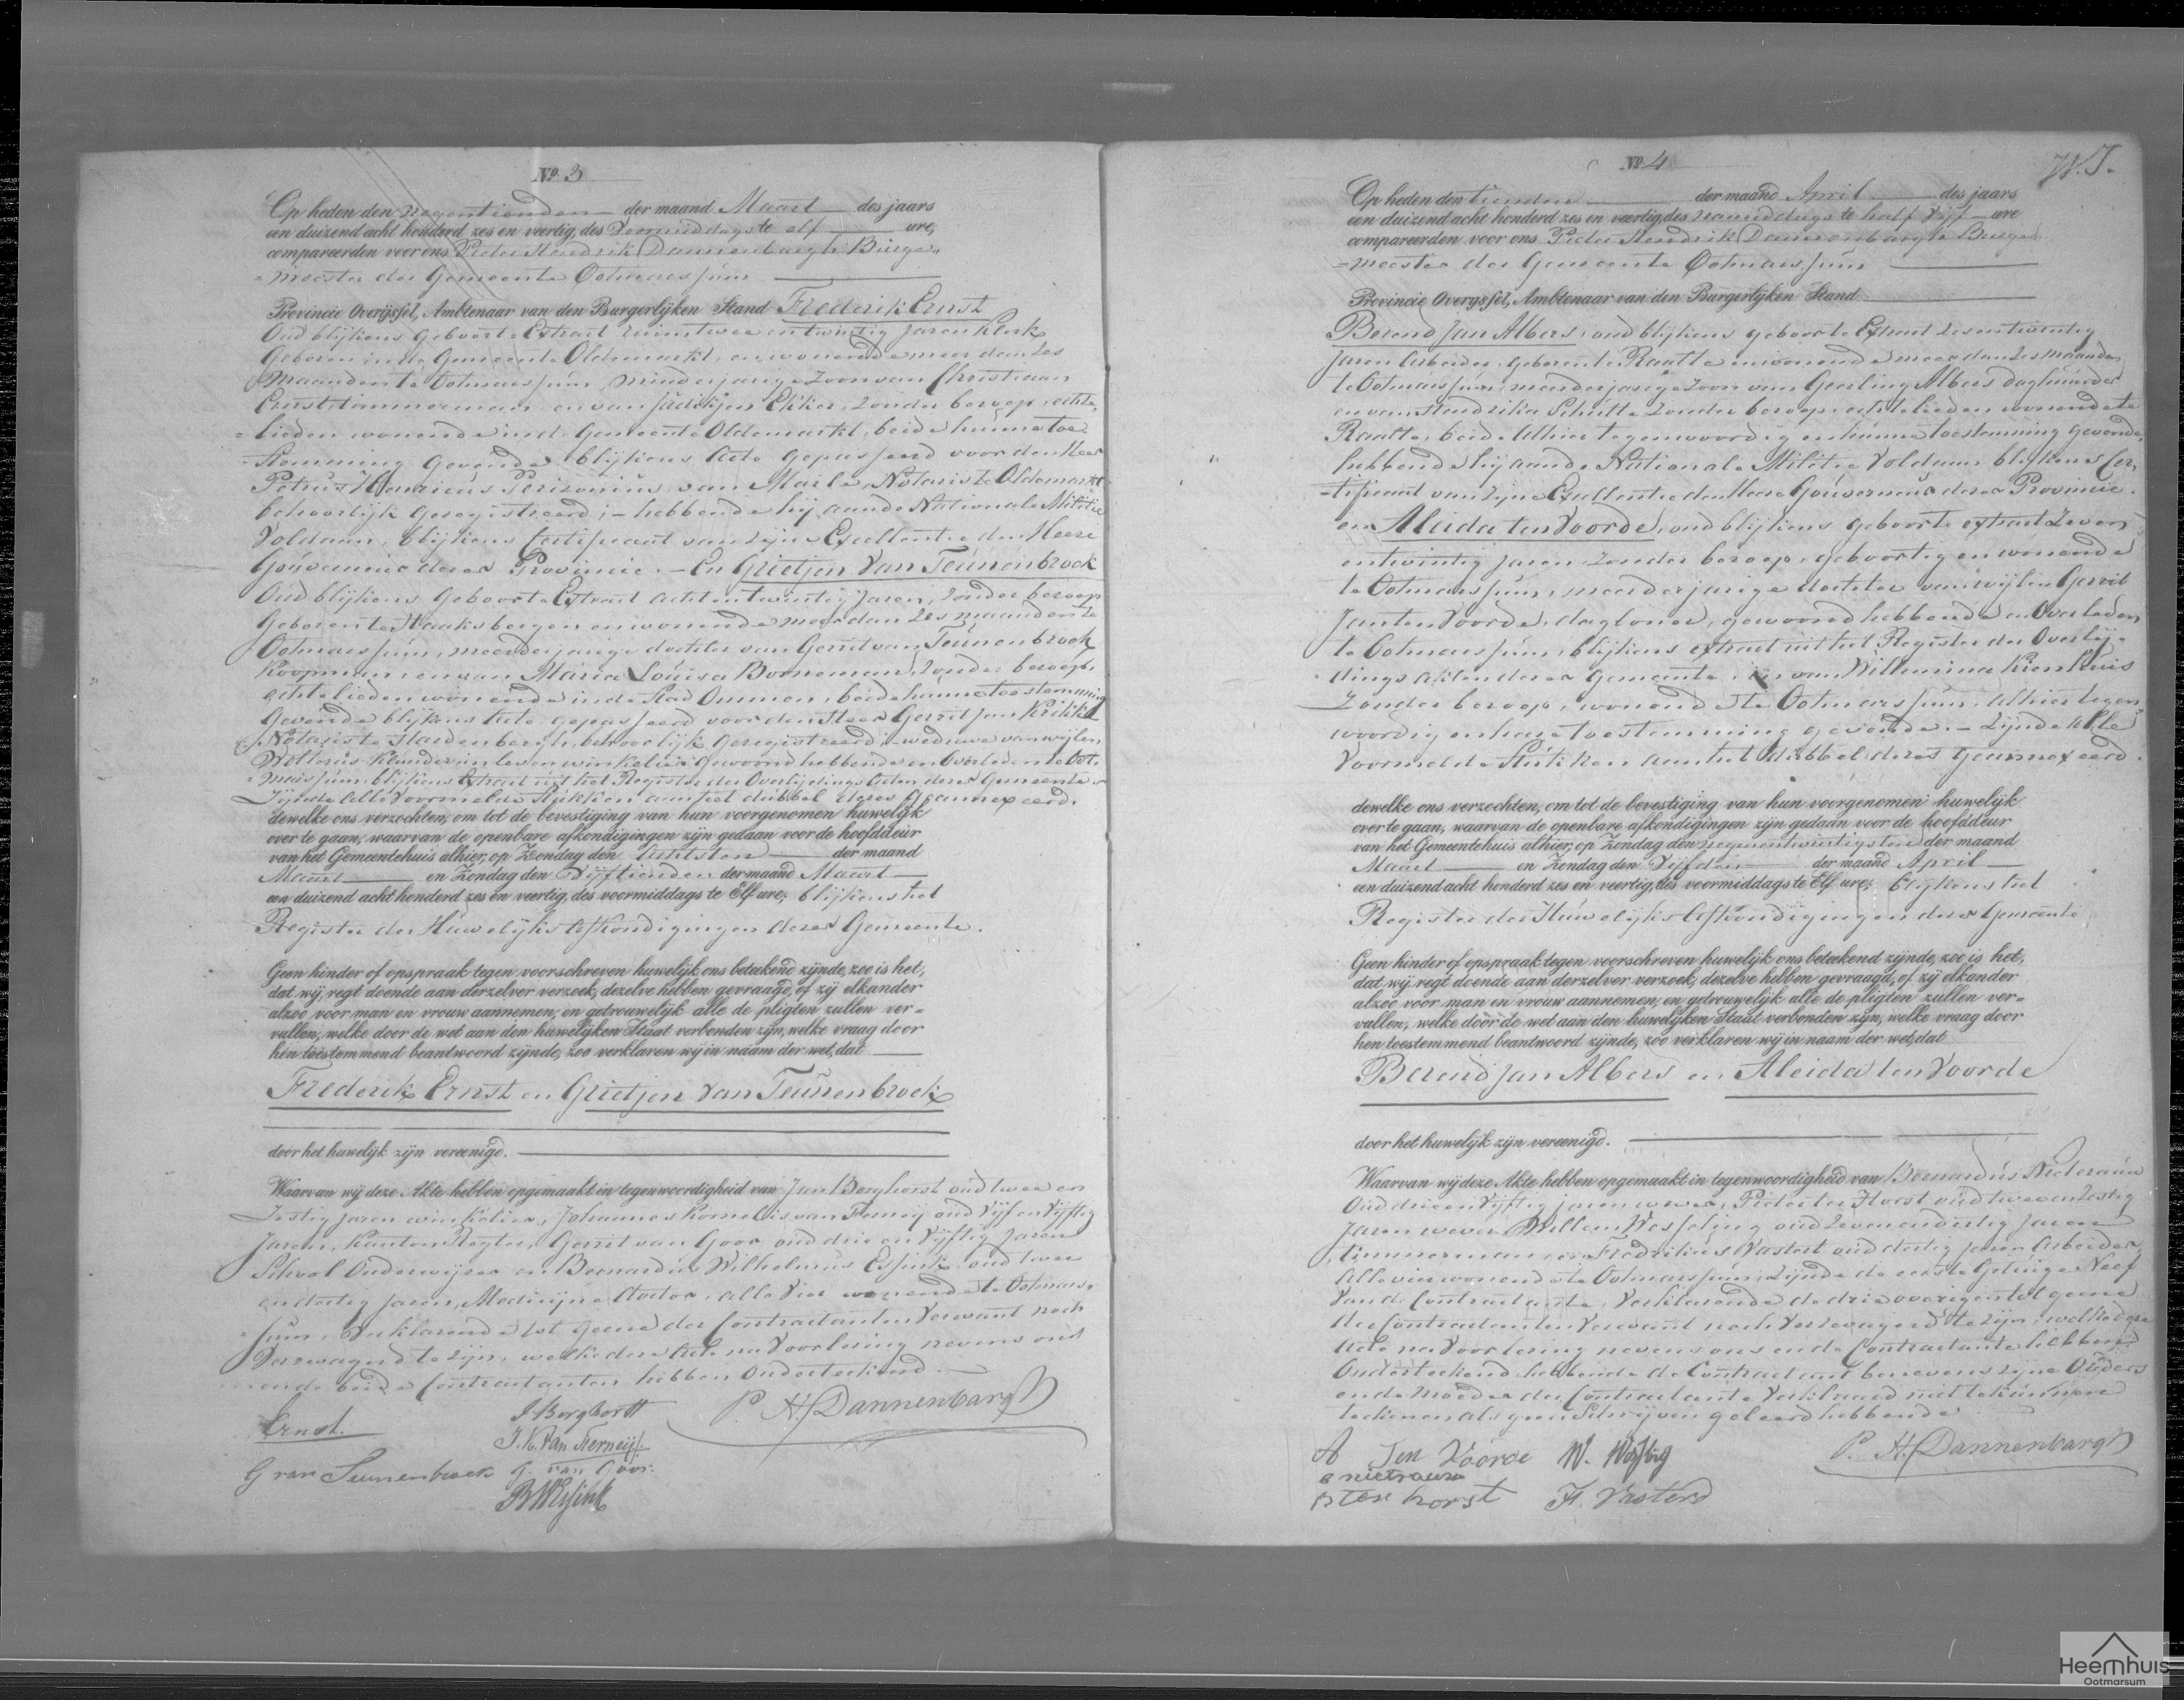 Nº 3
Op heden den negentienden der maand Maart des jaars
een duizend acht honderd zes en veertig, des Voormiddags te elf ure,
compareerden voor ons Pieter Hendrik Dannenbargh Burge-
-meester der Gemeente Ootmarssum
Provincie Overijssel, Ambtenaar van den Burgerlijken Stand Frederik Ernst
Oud blijkens geboorte Extract ruim twee en twintig Jaren Klerk
Geboren in de Gemeente Oldemarkt, en wonende meer dan zes
Maanden te Ootmarssum, minderjarige Zoon van Christiaan
Ernst timmerman en van zonder beroep, echte-
-lieden wonende in de Gemeente Oldemarkt, beide hunne toe-
-stemming gevende blijkens Acte gepasseerd voor den Heer
Petrus Henricus Perizonius van Marle, Notaris te Oldemarkt
behoorlijk geregistreerd; - hebbende hij aan de Nationale Militie
Voldaan, blijkens Certificaat van Zijne Excellentie den Heere
Gouverneur dezer Provincie. - En Grietjen Van Teunenbroek
Oud blijkens Geboorte Extract acht en twintig Jaren, Zonder beroep
Geboren te Haaksbergen en wonende meer dan zes maanden te
Ootmarssum, meerderjarige dochter van Gerrit van Teunenbroek
Koopman, en van Maria Louisa Borneman, Zonder beroep,
echtelieden wonende in de Stad Ommen, beide hunne toestemming
gevende blijkens Acte gepasseerd voor den Heer Gerrit Jan
Notaris te Hardenbergh, behoorlijk geregistreerd, - weduwe van wijlen
Wolterus Klunder in leven winkelier gewoond hebbende en Overleden te Oot-
-marssum, blijkens Extract uit het Register der Overlijdings Acten dezer Gemeente -
Zijnde alle Voormelde Stukken aan het dubbel dezes geannexeerd.
dewelke ons verzochten, om tot de bevestiging van hun voorgenomen huwelijk
over te gaan, waarvan de openbare afkondigingen zijn gedaan voor de hoofddeur
van het Gemeentehuis alhier, op Zondag den Achtsten der maand
Maart en Zondag den Vijftienden der maand Maart
een duizend acht honderd zes en veertig, des voormiddags te Elf ure; blijkens het
Register der Huwelijks Afkondigingen dezer Gemeente.
Geen hinder of opspraak tegen voorschreven huwelijk ons beteekend zijnde, zoo is het,
dat wij, regt doende aan derzelver verzoek, dezelve hebben gevraagd, of zij elkander
alzoo voor man en vrouw aannemen, en getrouwelijk alle de pligten zullen ver-
vullen, welke door de wet aan den huwelijken Staat verbonden zijn, welke vraag door
hen toestemmend beantwoord zijnde, zoo verklaren wij in naam der wet, dat
Frederik Ernst en Grietjen Van Teunenbroek
door het huwelijk zijn vereenigd.
Waarvan wij deze Akte hebben opgemaakt in tegenwoordigheid van Jan Borghorst oud twee en
Zestig jaren winkelier, Johannes Kornelis van oud Vijf en Vijftig
Jaren, Kanton Regter, Gerrit van Goor oud drie en Vijftig Jaren
School Onderwijzer en Bernardus Wilhelmus Essink oud twee
en dertig Jaren, Medicijne Doctor, alle Vier wonende te Ootmars-
-sum, Verklarende tot geene der Contractanten Verwant noch
Verzwagerd te zijn, welke deze Acte na Voorlezing nevens ons
en de beide Contractanten hebben Onderteekend.
Ernst. J Borghorst P. H. Dannenbargh
J. K. van
G van Teunenbroek G. van Goor.
BWEssink
Nº 4 W.J.
Op heden den tienden der maand April des jaars
een duizend acht honderd zes en veertig, des namiddags te half Vijf ure
compareerden voor ons Pieter Hendrik Dannenbargh Burge-
-meester der Gemeente Ootmarssum
Provincie Overijssel, Ambtenaar van den Burgerlijken Stand
Berend Jan Albers, oud blijkens geboorte Extract zes en twintig
Jaren Arbeider, geboren te Raalte en wonende meer dan zes maanden
te Ootmarssum, meerderjarige Zoon van Geerling Albers daghuurder
en van Hendrika Schutte zonder beroep, echtelieden wonende te
Raalte, beide Alhier tegenwoordig en hunne toestemming gevende,
hebbende hij aan de Nationale Militie Voldaan, blijkens Cer-
-tificaat van Zijne Excellentie den Heere Gouverneur dezer Provincie.
en Aleida ten Voorde, oud blijkens geboorte extract zeven
en twintig Jaren zonder beroep, geboortig en wonende
te Ootmarssum, meerderjarige dochter van wijlen Gerrit
Jan ten Voorde, dagloner, gewoond hebbende en Overleden
te Ootmarssum, blijkens extract uit het Register der Overlij-
dings Akten dezer Gemeente, en van Willemina Kienhuis
Zonder beroep, wonende te Ootmarssum, Alhier tegen-
woordig en hare toestemming gevende. - Zijnde Alle
Voormelde Stukken aan het dubbel dezes geannexeerd.
dewelke ons verzochten, om tot de bevestiging van hun voorgenomen huwelijk
over te gaan, waarvan de openbare afkondigingen zijn gedaan voor de hoofddeur
van het Gemeentehuis alhier, op Zondag den negenentwintigsten der maand
Maart en Zondag den Vijfden der maand April
een duizend acht honderd zes en veertig, des voormiddags te Elf ure; blijkens het
Register der Huwelijks Afkondigingen dezer Gemeente
Geen hinder of opspraak tegen voorschreven huwelijk ons beteekend zijnde, zoo is het,
dat wij, regt doende aan derzelver verzoek, dezelve hebben gevraagd, of zij elkander
alzoo voor man en vrouw aannemen, en getrouwelijk alle de pligten zullen ver-
vullen, welke door de wet aan den huwelijken Staat verbonden zijn, welke vraag door
hen toestemmend beantwoord zijnde, zoo verklaren wij in naam der wet, dat
Berend Jan Albers en Aleida ten Voorde
door het huwelijk zijn vereenigd.
Waarvan wij deze Akte hebben opgemaakt in tegenwoordigheid van Bernardus
Oud drie en Vijftig jaren wever, Pieter ter Horst oud twee en zestig
Jaren wever Willem Wesseling oud zeven en dertig Jaren
timmerman en Fredrikus Vastert oud dertig jaren Arbeider
Alle vier wonende te Ootmarssum, zijnde de eerste Getuige Neef
van de Contractante, Verklarende de drie overigen tot geene
der Contractanten Verwant noch Verzwagerd te zijn, welke deze
Acte na Voorlezing nevens ons en de Contractante hebben
Onderteekend, hebbende de Contractant benevens zijne Ouders
en de Moeder der Contractante Verklaard niet te kunnen
teekenen als geen Schrijven geleerd hebbende
A Ten Voorde W. P. H. Dannenbargh
P ter horst F. Vasterd
Heemhuis
Ootmarsum